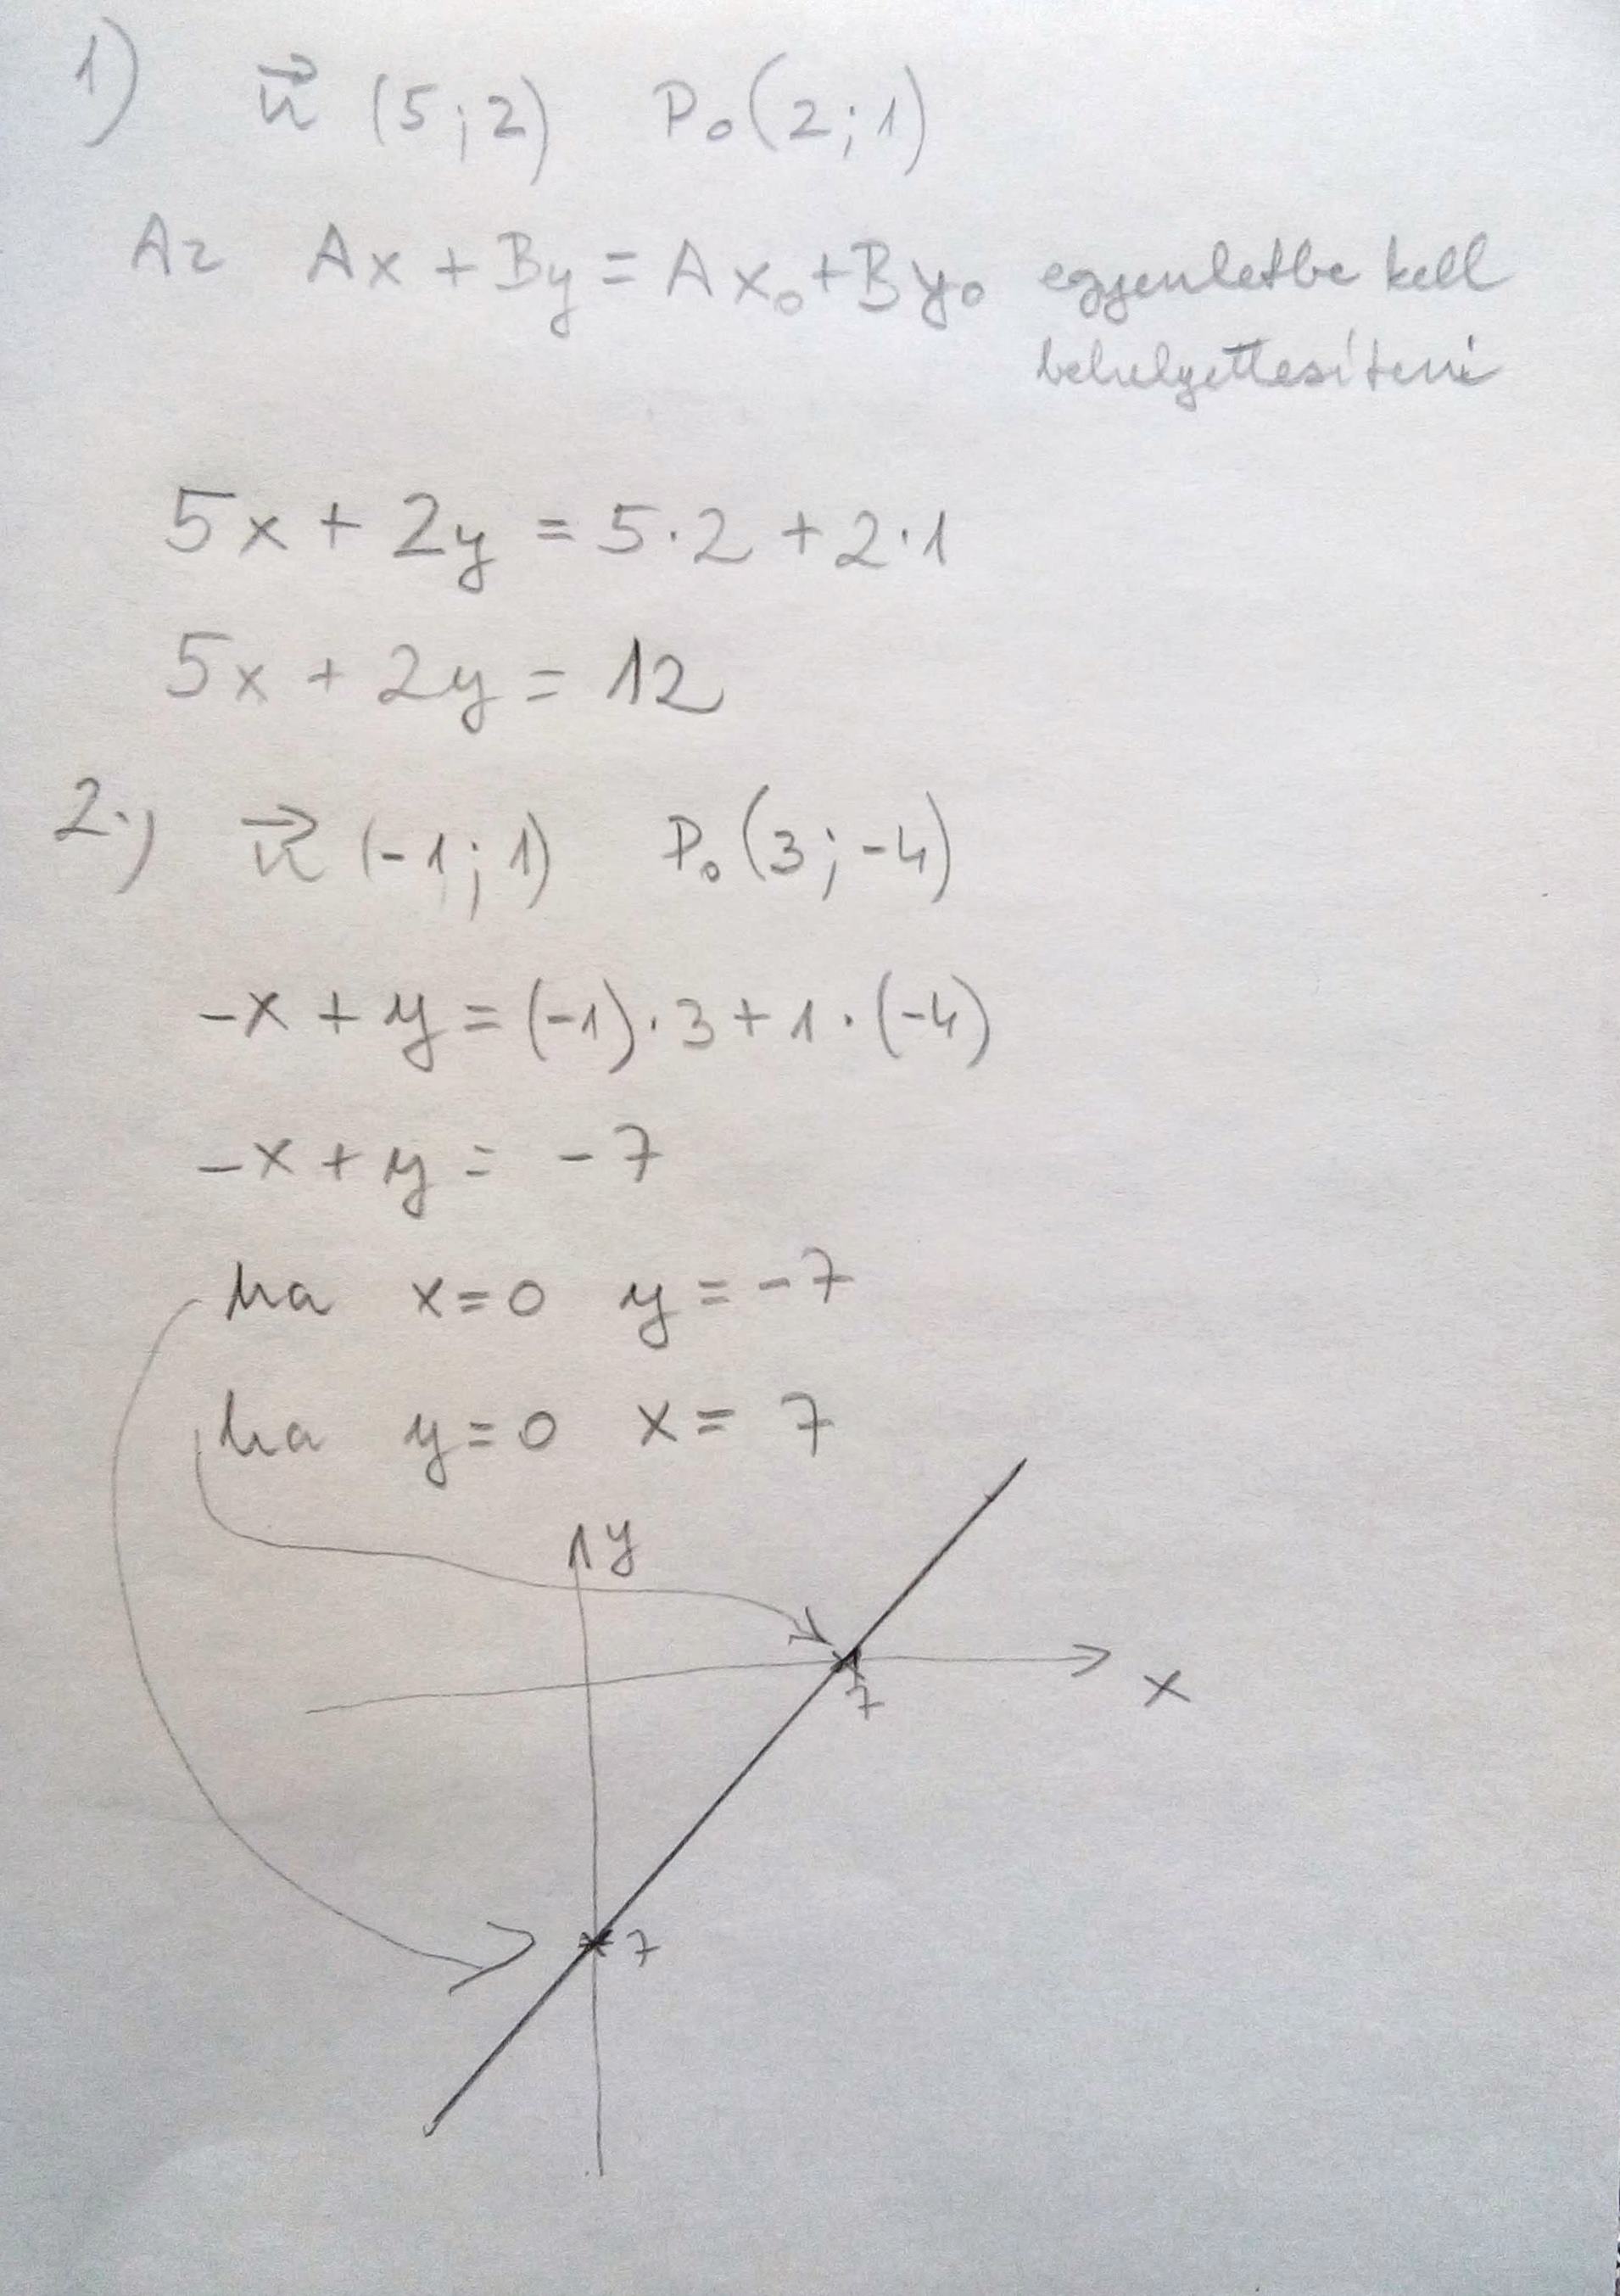 1) n⃗ (5;2) P₀(2;1)
Az Ax + By = Ax₀ + By₀ egyenletbe kell
behelyettesíteni
5x + 2y = 5·2 + 2·1
5x + 2y = 12
2.) n⃗ (-1;1) P₀(3;-4)
-x + y = (-1)·3 + 1·(-4)
-x + y = -7
ha x=0 y=-7
ha y=0 x= 7
y
x
7
7